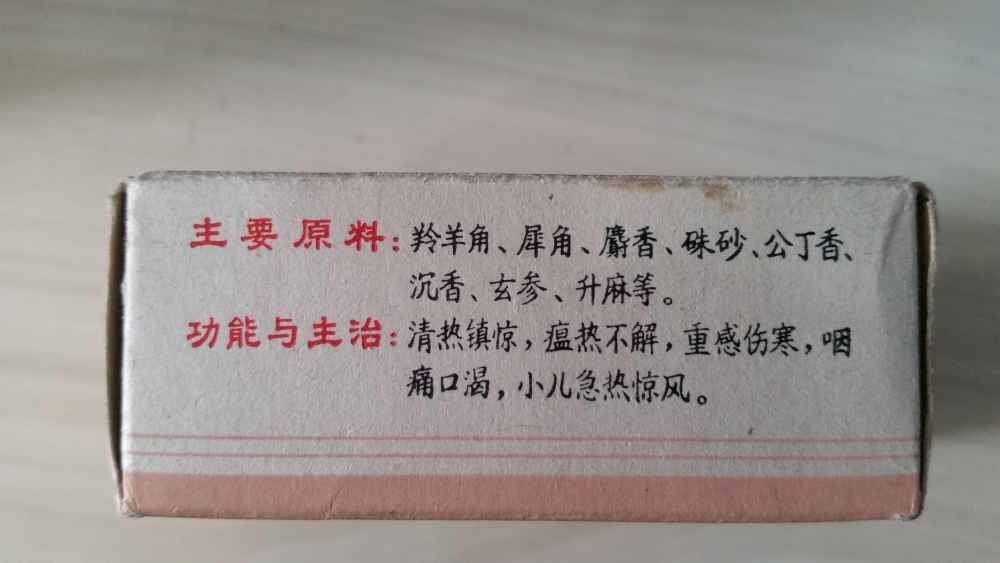 主要原料:羚羊角、犀角、麝香、硃砂、公丁香、
沉香、玄参、升麻等。
功能与主治:清热镇惊，瘟热不解，重感伤寒，咽
痛口渴，小儿急热惊风。